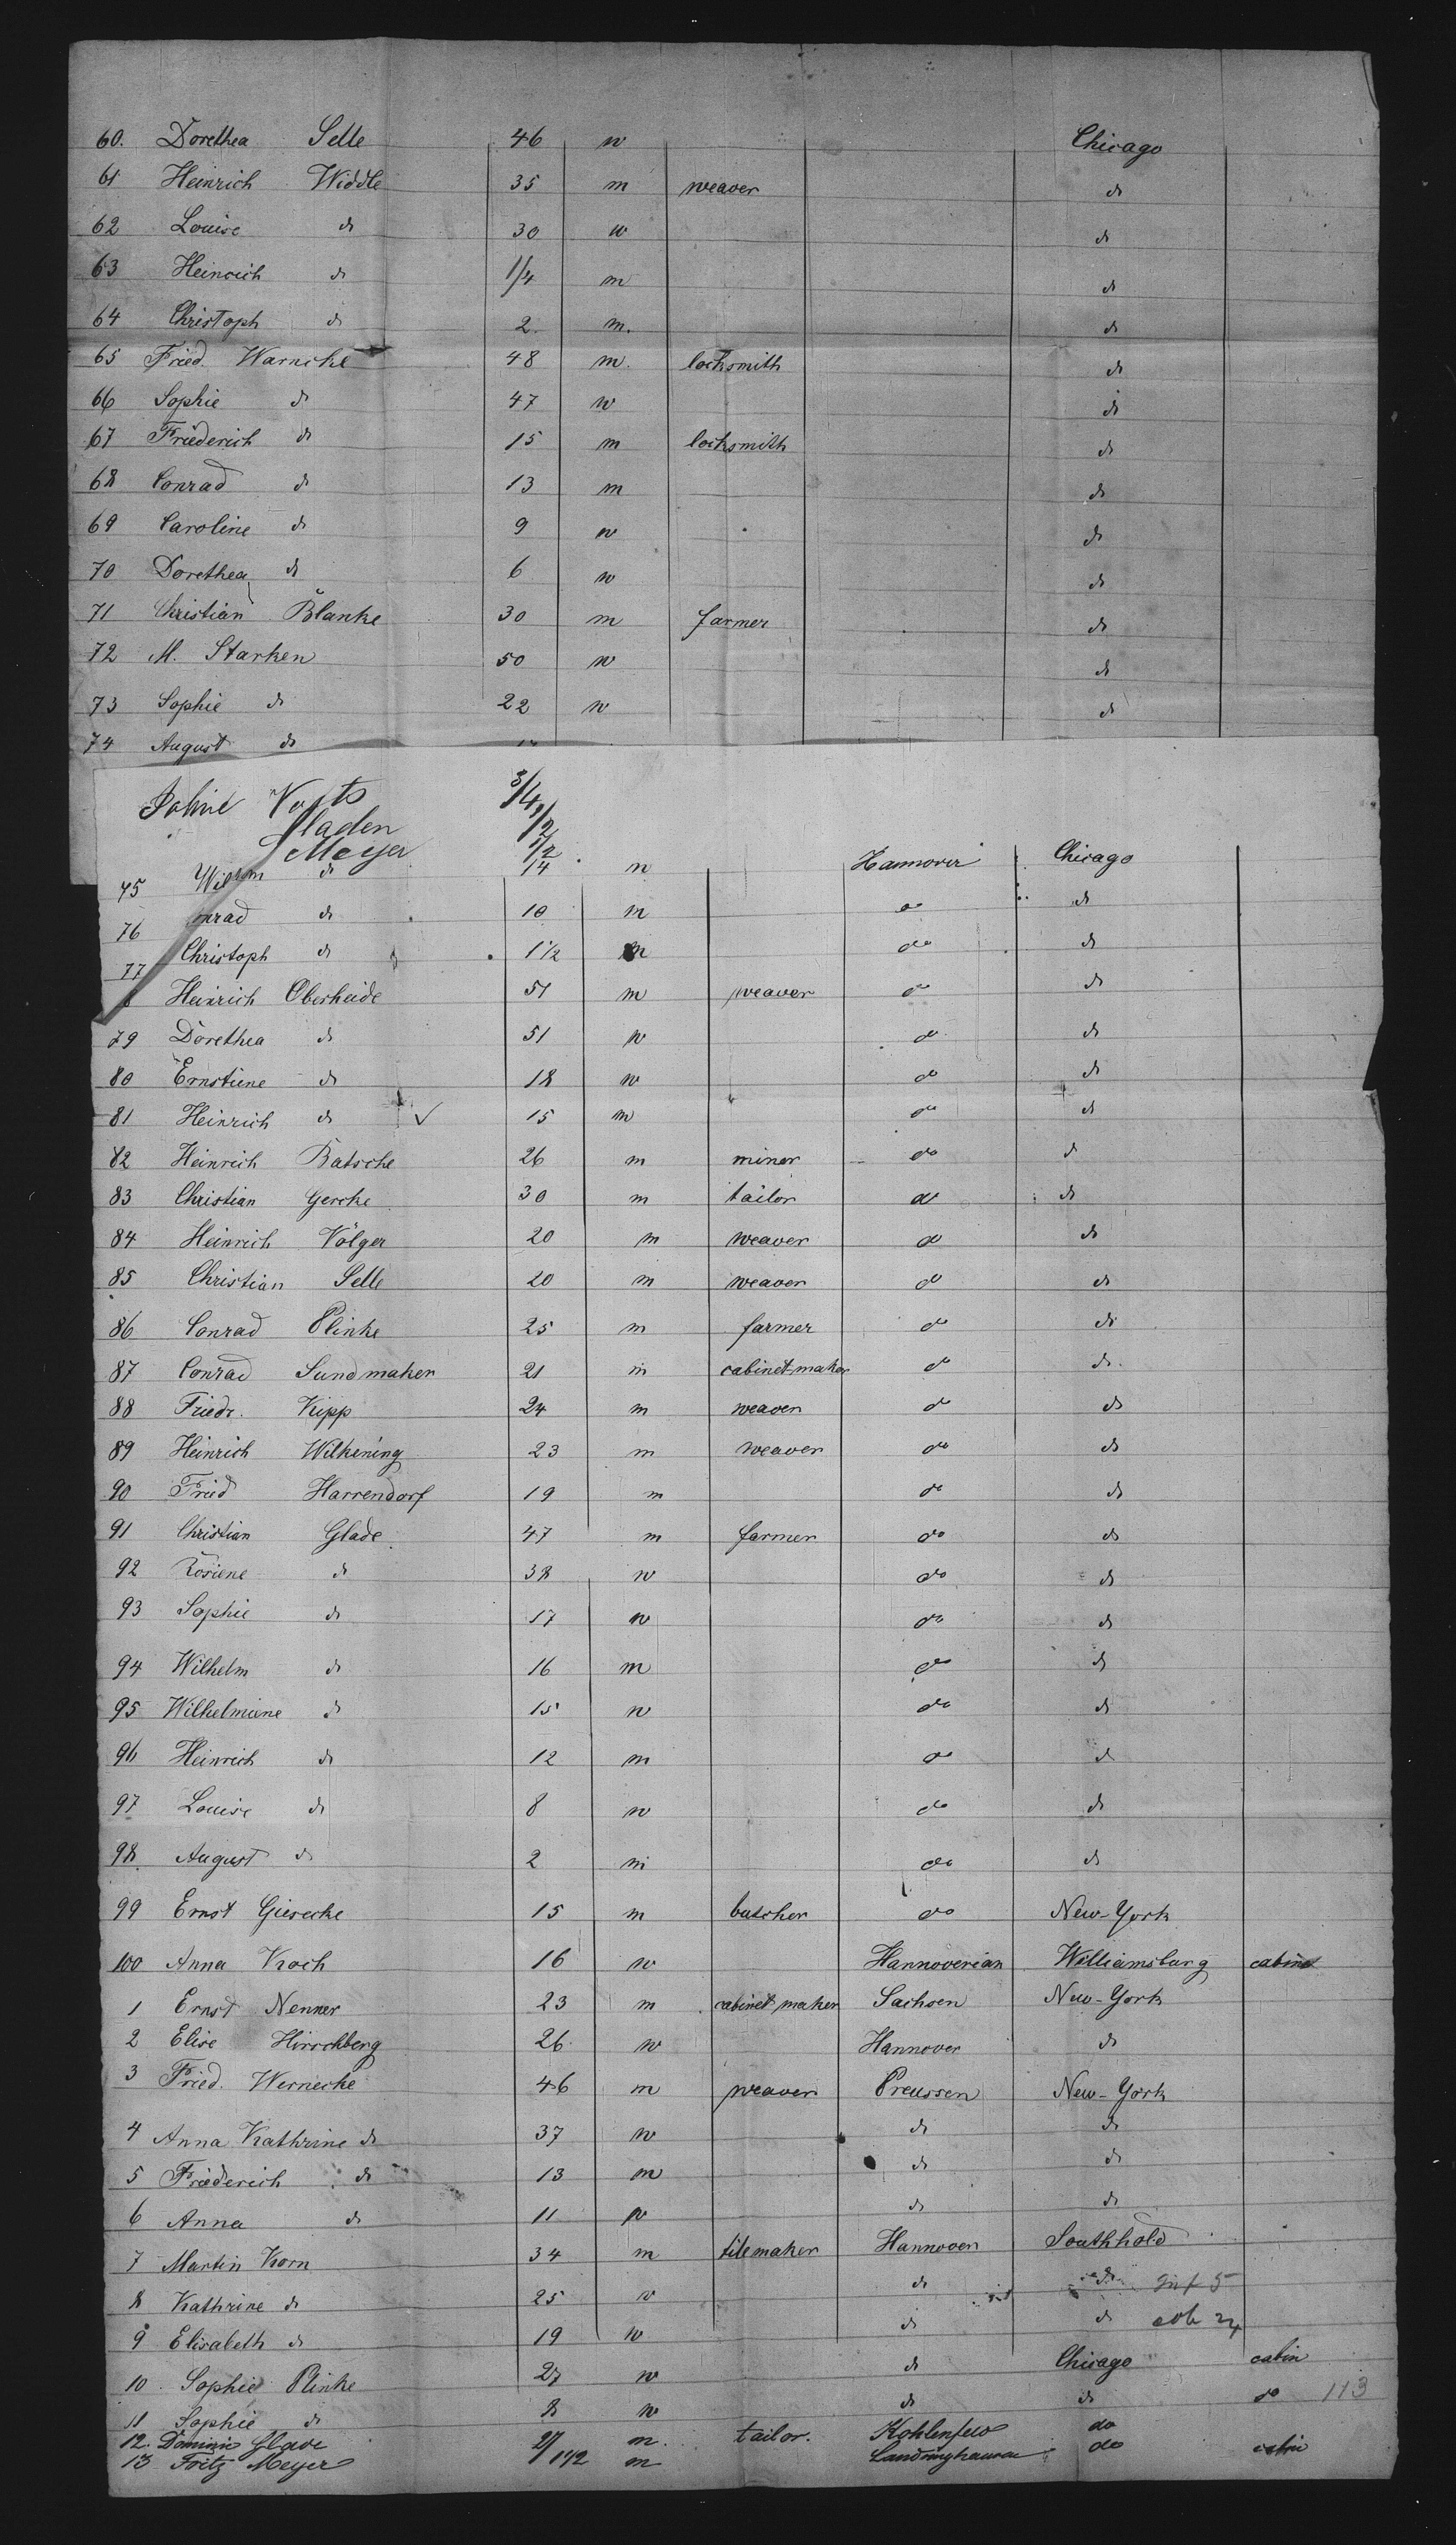 60. Dorethea Selle 46 w Chicago
61 Heinrich Widdle 35 m weaver do
62 Louise do 30 w do
63 Heinrich do 1/4 m do
64 Christoph do 2. m. do
65 Fried. Warncke 48 m. locksmith do
66 Sophie do 47 w do
67 Friederich do 15 m locksmith do
68 Conrad do 13 m do
69 Caroline do 9 w do
70 Dorethea do 6 w do
71 Christian Blanke 30 m farmer do
72 M. Starken 50 w do
73 Sophie do 22 w do
74 August do
3/4
Sladen 1/2
Meyer 1/2
75 do 14 m Hannover Chicago
76 nrad do 10 m do do
77 Christoph do 1 1/2 m do do
8 Heinrich Oberheide 51 m weaver do do
79 Dorethea do 51 w do do
80 Ernstiene do 18 w do do
81 Heinrich do ✓ 15 m do do
82 Heinrich Batsche 26 m miner do do
83 Christian Gercke 30 m tailor do do
84 Heinrich Völger 20 m weaver do do
85 Christian Selle 20 m weaver do do
86 Conrad Plinke 25 m farmer do do
87 Conrad Sundmaker 21 m cabinet-maker do do
88 Friedr. Kipp 24 m weaver do do
89 Heinrich Wilkening 23 m weaver do do
90 Fried Harrendorf 19 m do do
91 Christian Glade 47 m farmer do do
92 Rosiene do 38 w do do
93 Sophie do 17 w do do
94 Wilhelm do 16 m do do
95 Wilhelmiene do 15 w do do
96 Heinrich do 12 m do do
97 Louise do 8 w do do
98 August do 2 m do do
99 Ernst Giesecke 15 m butcher do New-York
100 Anna Koch 16 w Hannoverian Williamsburg cabine
1 Ernst Nenner 23 m cabinet maker Sachsen New-York
2 Elise Hirschberg 26 w Hannover do
3 Fried. Wernecke 46 m weaver Preussen New-York
4 Anna Kathrine do 37 w do do
5 Friederich do 13 m do do
6 Anna do 11 w do do
7 Martin Korn 34 m tilemaker Hannover Southhold
8 Kathrine do 25 w do do Inf 5
9 Elisabeth do 19 w do do
10 Sophie Plinke 27 w do Chicago cabin
11 Sophie do 8 w do do do 113
12. Glade 27 m. tailor. Kohlenfeld do
13 Fritz Meyer 1 1/2 m Landringhausen do